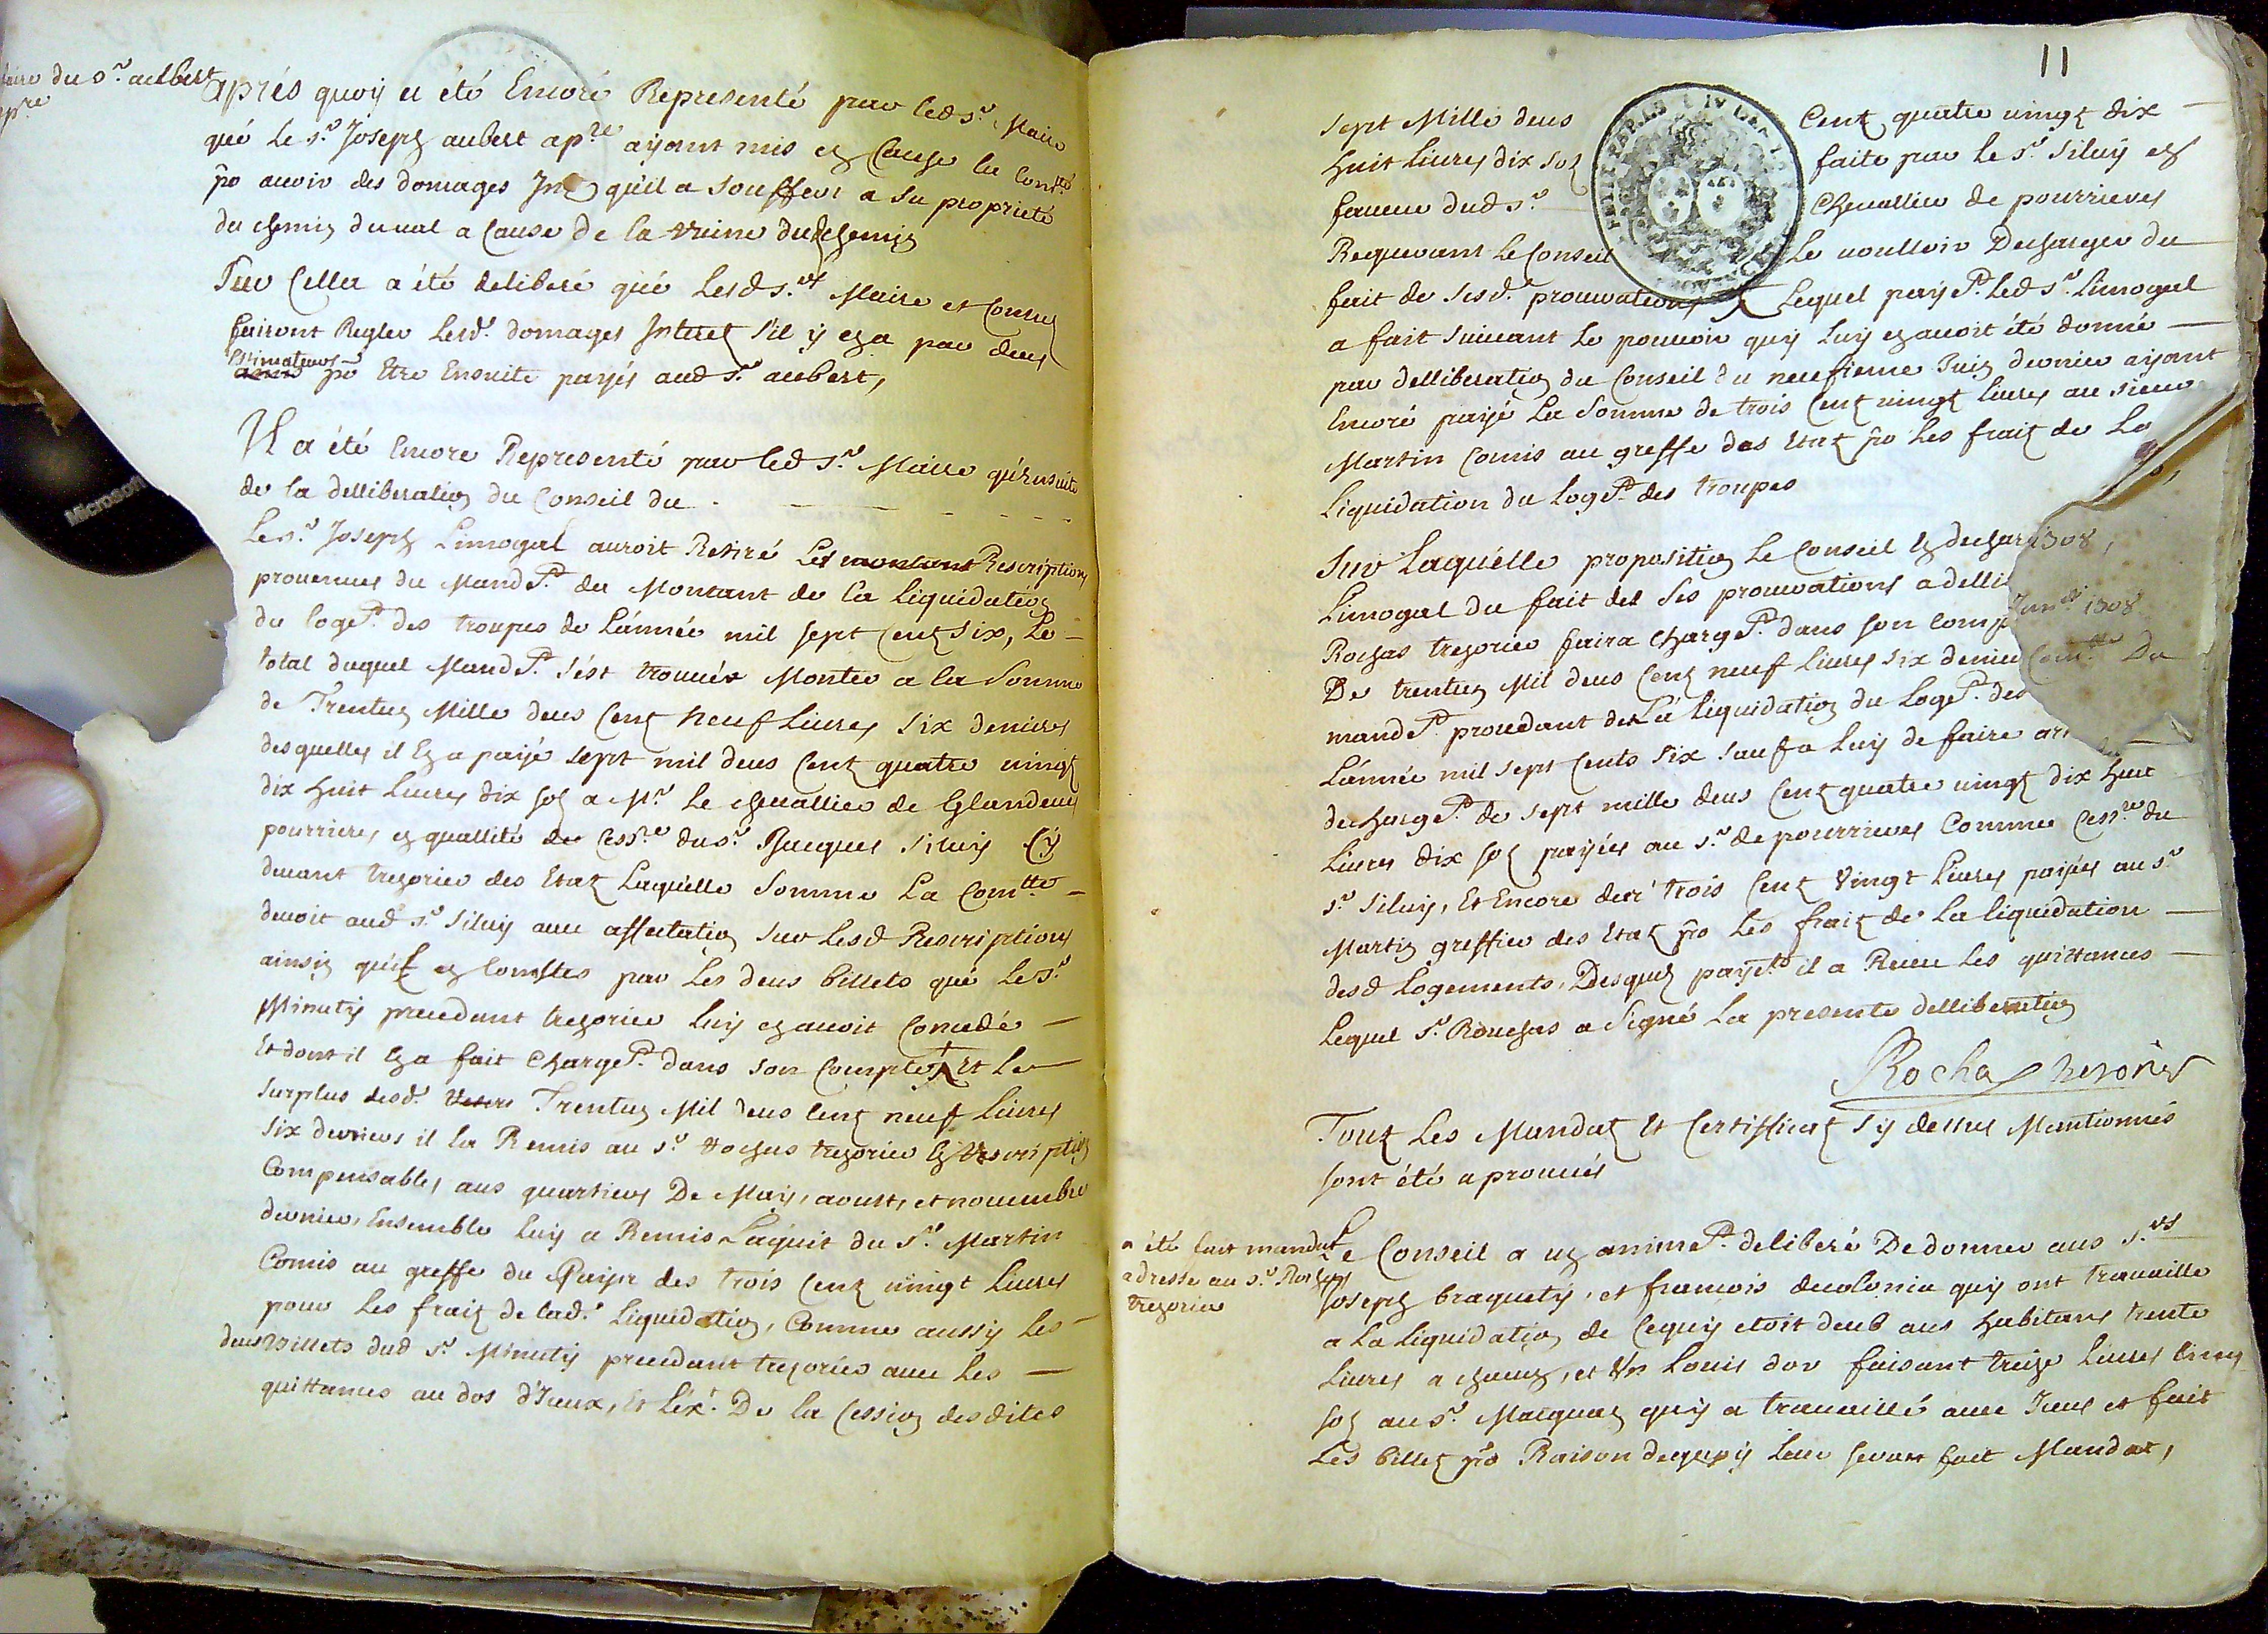 faire du s.r aubert
ap.re
après quoy a été Encoré Representé par led s.r Maire
qué le s.r Joseph aubert ap.re ayant mis en Cause la Com.té
po avoir des domages qu'il a souffert a sa proprieté
du chemin duval a Cause de la du chemin
Sur Cella a été deliberé qué Lesd s.rs Maire et Consuls
fairont Regler Lesd. domages Interet s'il y en a par deux
Estimateurs po Etre Ensuite payés aud s.r aubert,
Il a été Encore Representé par led s.r Maire qu'ensuite
de la delliberation du Conseil du
Le s.r Joseph Limogal auroit Retiré Les Rescriptions
provenues du Mand.t du Montant de la Liquidation
du loge.t des troupes de L'année mil sept Cent six, Le
total duquel Mand.t s'ést trouvés Monter a la somme
de Trentun Mille deus Cent neuf Livres six deniers
desquelles il En a payé sept mil deus Cent quatre vingt
dix huit Livres dix sol a M.r Le chevallier de Glandeves
pourriere, en quallité de Cess.re du s.r Jacques Silvy Cy
devant trezorier des Etat Laquélle Somme La Com.tte
devoit aud s.r Silvy avec affectation sur Lesd Rescriptions
ainsin quil en Conste par Les deus billets qué Le s.r
Minuty precedant trezorier Luy en avoit Concedé
Et dont il En a fait Charge.t dans son Compte, Et Le
surplus desd. Trentun Mil deus Cent neuf Livres
six derniers il La Remis au s.r Rochas trezorier En Rescription
Compensables aus quartiers De May, aoust, et novembre
dernier, Ensemble Luy a Remis L'aquit du s.r Martin
Comis au greffe du Païs des trois Cent vingt Livres
pour Les fraiz de lad. Liquidation, Comme aussy Les
deus Billets dud s.r Minuty precedant trezorier avec Les
quittances au dos d'Iceux, Et L'ex.t De La Cession desdites
11
sept Mille deus Cent quatre vingt dix
huit Livres dix sol faite par Le s.r Silvy en
faveur dud s.r Chevallier de pourrieres
Requerant Le Conseil Le voulloir Descharger du
fait de sesd. procurations Lequel paÿ.t Led s.r Limogal
a fait suivant Le pouvoir quy Luy en avoit été donné
par delliberation du Conseil du neufieme Juin dernier ayant
Encoré payé La Somme de trois Cent vingt Livres au sieur
Martin Comis au greffe des Etat po Les fraiz de La
Liquidation du Loge.t des troupes
Sur Laquélle proposition Le Conseil En
Limogal du fait des Ses procurations a
Rochas trezorier faira Charge.t dans son
De trentun Mil deus Cent neuf Livres six
mande.t procedant de La Liquidation du Loge.t des
L'année mil sept Cents six sauf a Luy de faire
decharge.t de sept mille deus Cent quatre vingt dix huit
Livres dix sol payées au s.r de pourrieres Comme Cess.re du
s.r Silvy, Et Encore de trois Cent vingt Livres payées au s.r
Martin greffier des Etat po Les fraiz de La liquidation
desd Logements, Desquels paye.ts il a Receu Les quittances
Lequel s.r Rouchas a Signé La presente delliberation
1308,
Jan.er 1308
Com.tte Du
Rochas thresorier
Tout Les Mandat Et Certifficat Sy dessus Mantionnés
sont été aprouvés
a été fait mandat
adressé au s.r Rochas
trezorier
Le Conseil a unanime.t deliberé De donner aus s.rs
Joseph braquety, et francois decolonia quy ont travaillé
a La liquidation de Cequy etoit deub aus habitans trente
Livres a chacun, et Un Louis dor faisant treize Livres Cinq
sol au s.r quy a travaillé avec Iceus et fait
Les billet po Raison dequoy Leur seront fait Mandat,
Microsoft